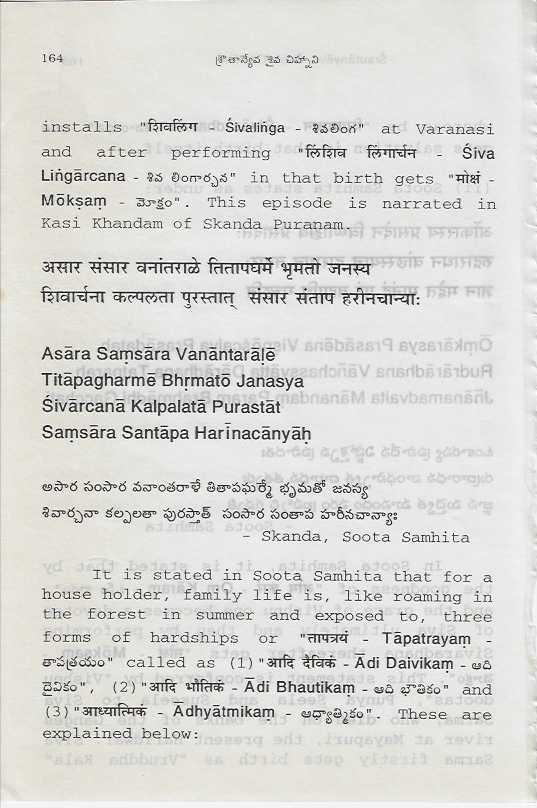 164 శ్రౌతాన్యేవ శైవ చిహ్నాని
installs "शिवलिंग - Śivaliṅga - శివలింగ" at Varanasi
and after performing "लिंशिव लिंगार्चन - Śiva
Liṅgārcana - శివ లింగార్చన" in that birth gets "मोक्षं -
Mōkṣaṃ - మోక్షం". This episode is narrated in
Kasi Khandam of Skanda Puranam.
असार संसार वनांतराळे तितापघर्मे भृमतो जनस्य
शिवार्चना कल्पलता पुरस्तात् संसार संताप हरीनचान्याः
Asāra Saṃsāra Vanāntarāḷē
Titāpagharmē Bhṛmatō Janasya
Śivārcanā Kalpalatā Purastāt
Saṃsāra Santāpa Harīnacānyāḥ
అసార సంసార వనాంతరాళే తితాపఘర్మే భృమతో జనస్య
శివార్చనా కల్పలతా పురస్తాత్ సంసార సంతాప హరీనచాన్యాః
- Skanda, Soota Samhita
It is stated in Soota Samhita that for a
house holder, family life is, like roaming in
the forest in summer and exposed to, three
forms of hardships or "तापत्रयं - Tāpatrayaṃ -
తాపత్రయం" called as (1) "आदि दैविकं - Ādi Daivikaṃ - ఆది
దైవికం", (2) "आदि भौतिकं - Ādi Bhautikaṃ - ఆది భౌతికం" and
(3) "आध्यात्मिकं - Ādhyātmikaṃ - ఆధ్యాత్మికం". These are
explained below: